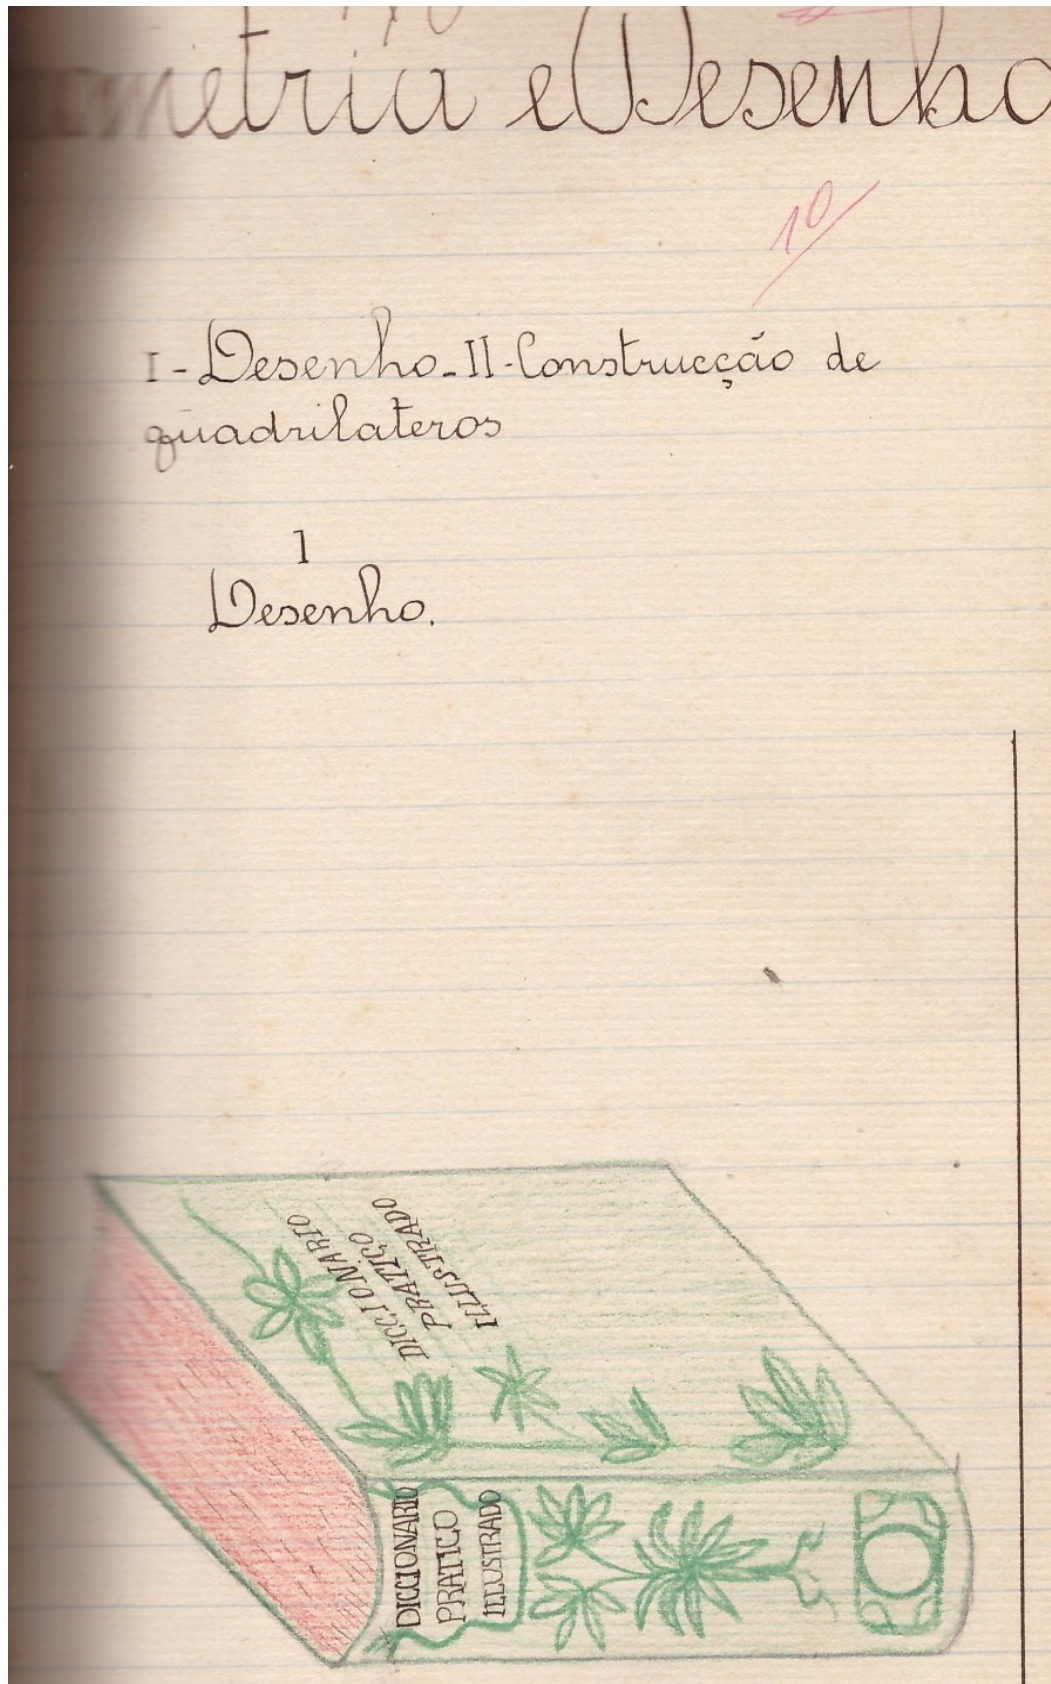 metria e Desenho
10
I - Desenho - II - Construcção de
quadrilateros
1
Desenho.
DICCIONARIO
PRATICO
ILLUSTRADO
DICCIONARIO
PRATICO
ILLUSTRADO